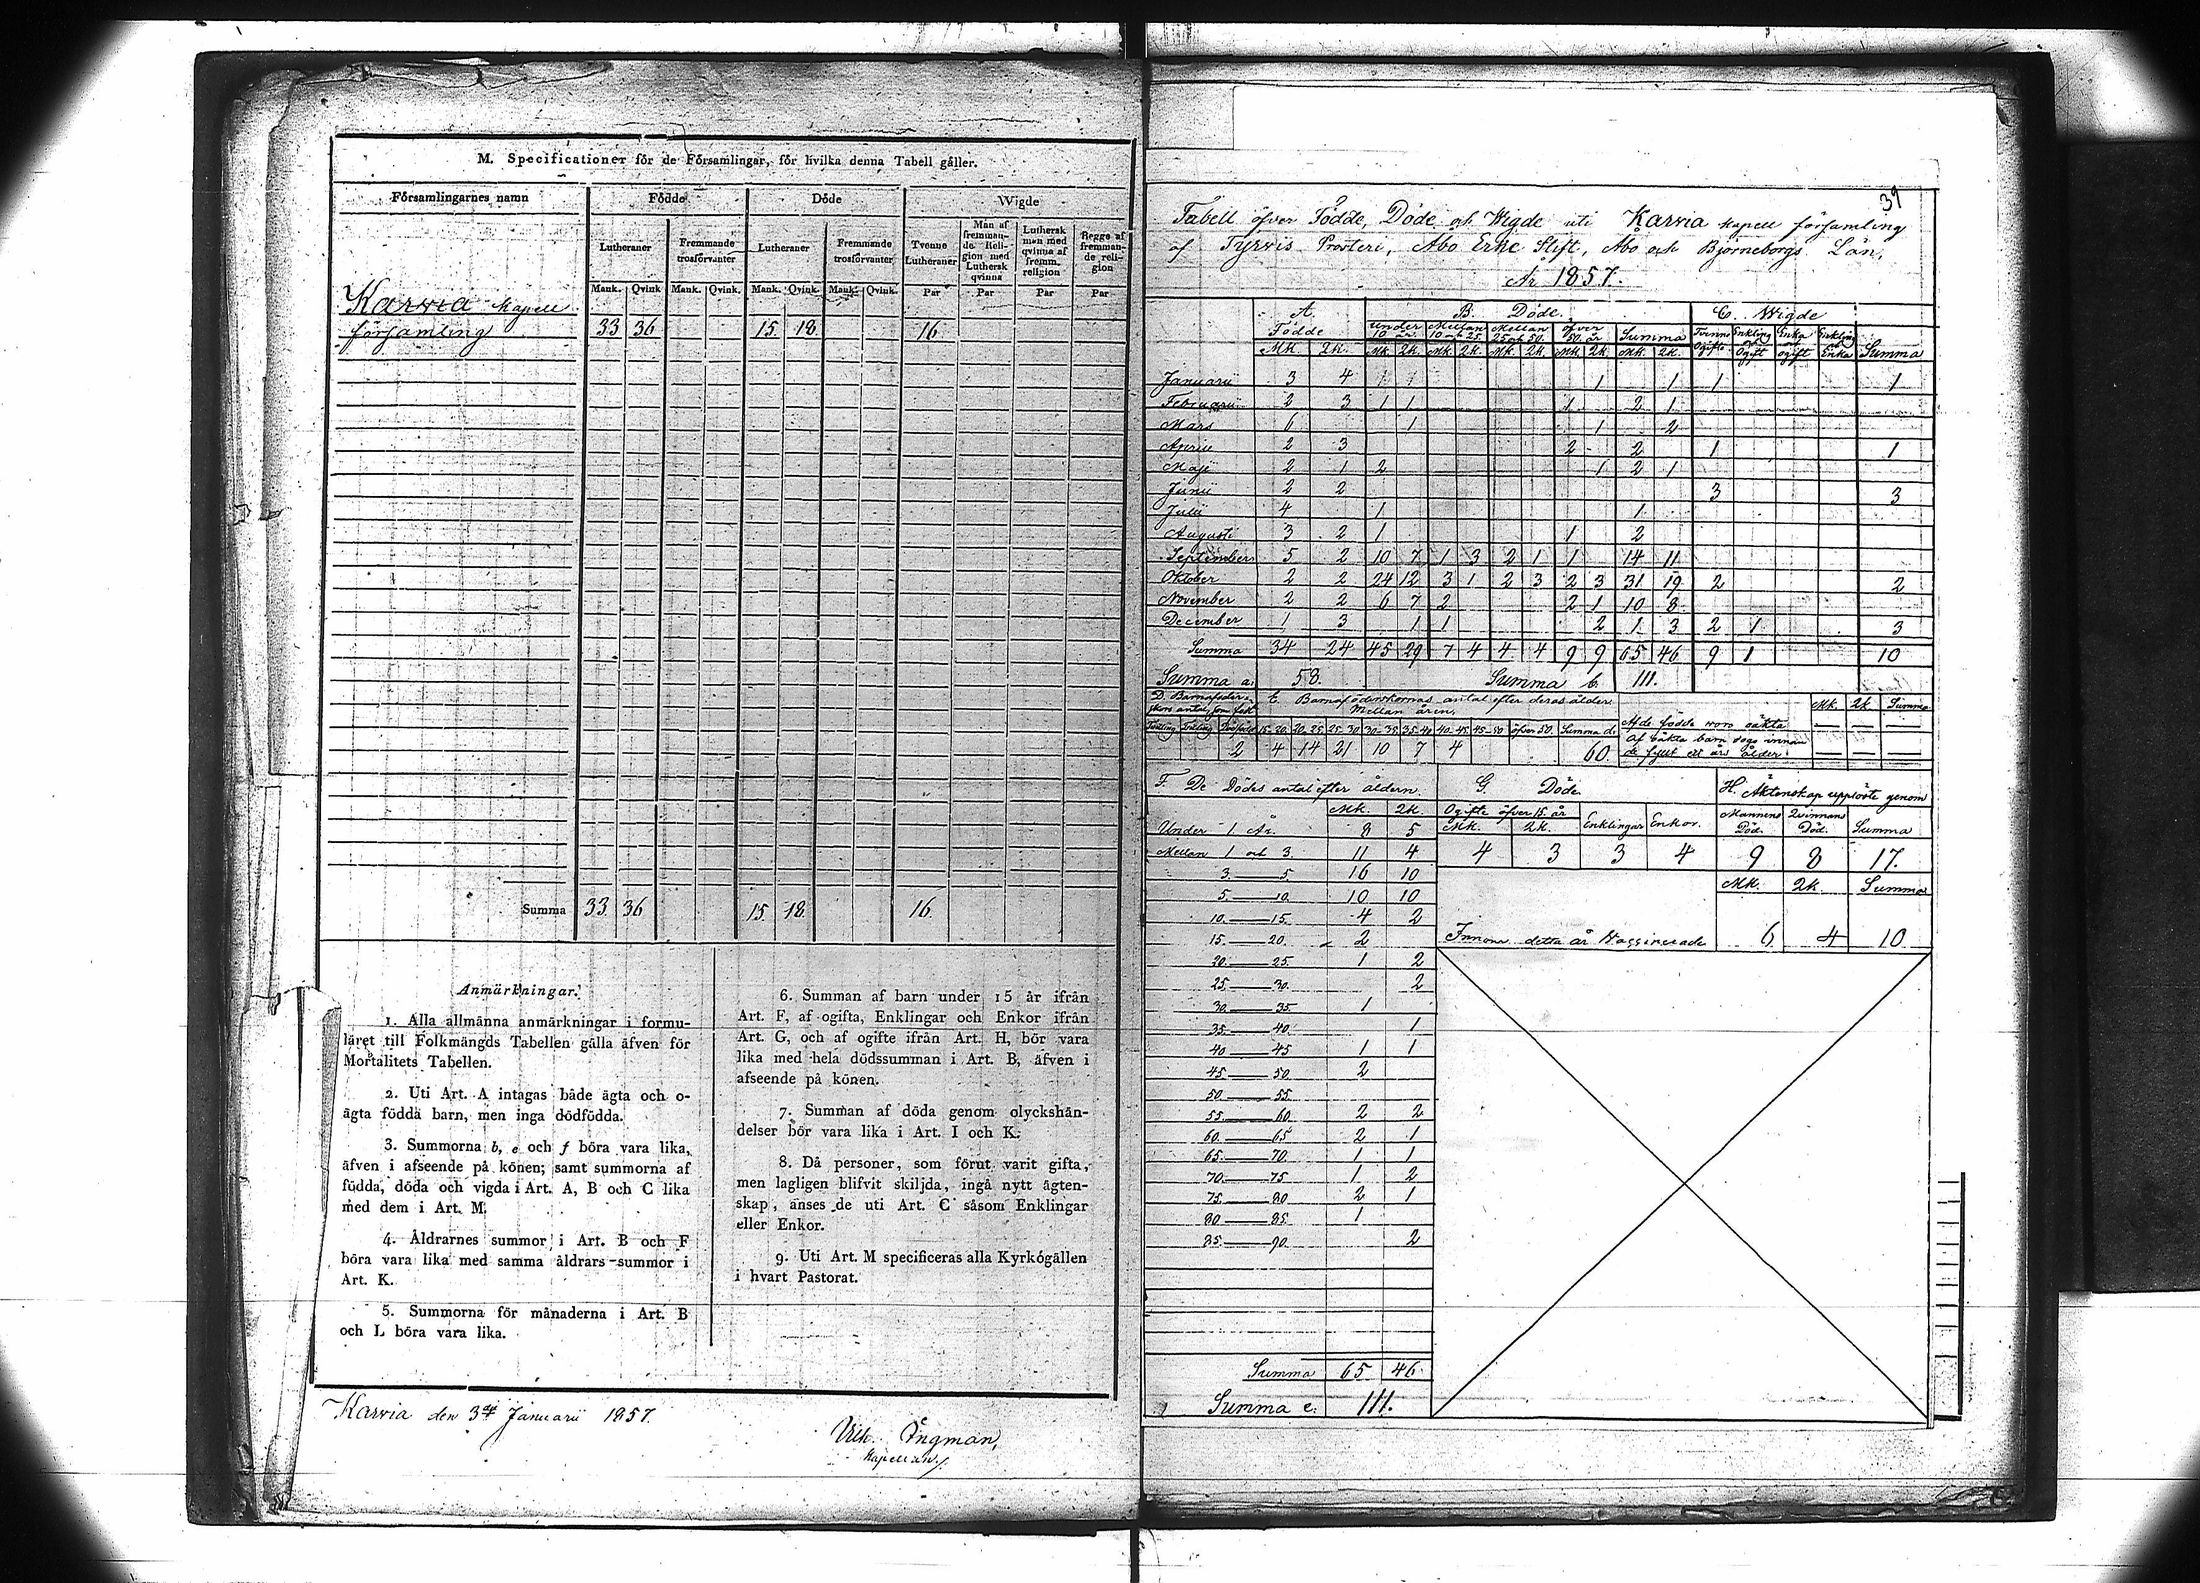 M. Specificationer för de Församlingar, för hvilka denna Tabell gäller.
Församlingarnes namn Födde Döde Wigde
Lutheraner Fremmande trosförvanter Lutheraner Fremmande trosförvanter Tvenne Lutheraner Män af fremmande Religion med Luthersk qvinna Luthersk man med qvinna af fremm. religion Begge af fremmande religion
Mank. Qvink. Mank. Qvink. Mank. Qvink. Mank. Qvink. Par Par Par Par
Karvia Kapell
församling 33 36 15 18 16
Summa 33 36 15 18 16
Anmärkningar.
1. Alla allmänna anmärkningar i formu-
läret till Folkmängds Tabellen gälla äfven för
Mortalitets Tabellen.
2. Uti Art. A intagas både ägta och o-
ägta födda barn, men inga dödfödda.
3. Summorna b, e och f böra vara lika,
äfven i afseende på könen; samt summorna af
födda, döda och vigda i Art. A, B och C lika
med dem i Art. M.
4. Åldrarnes summor i Art. B och F
böra vara lika med samma åldrars-summor i
Art. K.
5. Summorna för månaderna i Art. B
och L böra vara lika.
6. Summan af barn under 15 år ifrån
Art. F, af ogifta, Enklingar och Enkor ifrån
Art. G, och af ogifte ifrån Art. H, bör vara
lika med hela dödssumman i Art. B, äfven i
afseende på könen.
7. Summan af döda genom olyckshän-
delser bör vara lika i Art. I och K.
8. Då personer, som förut varit gifta,
men lagligen blifvit skiljda, ingå nytt ägten-
skap, anses de uti Art. C såsom Enklingar
eller Enkor.
9. Uti Art. M specificeras alla Kyrkogällen
i hvart Pastorat.
Karvia den 3de Januarii 1857.
Vilh. Ingman,
Kapellan.
39
Tabell öfver Födde, Döde och Wigde uti Karvia Kapell församling
af Tyrvis Prosteri, Åbo Erke Stift, Åbo och Björneborgs Län,
År 1857.
A. Födde B. Döde C. Wigde
under 10 år Mellan 10 och 25 Mellan 25 och 50 öfver 50 år Summa Tvenne Ogifte Enkling och Ogift Enka och ogift Enkling och Enka Summa
Mk. Qk. Mk. Qk. Mk. Qk. Mk. Qk. Mk. Qk. Mk. Qk.
Januarii 3 4 1 1 1 1 1 1
Februarii 2 3 1 1 1 2 1
Mars 6 1 1 2
Aprill 2 3 2 2 1 1
Maji 2 1 2 1 2 1
Junii 2 2 3 3
Julii 4 1 1
Augusti 3 2 1 1 2
September 5 2 10 7 1 3 2 1 1 14 11
Oktober 2 2 24 12 3 1 2 3 2 3 31 19 2 2
November 2 2 6 7 2 2 1 10 8
December 1 3 1 1 2 1 3 2 1 3
Summa 34 24 45 29 7 4 4 4 9 9 65 46 9 1 10
Summa a. 58. Summa b. 111.
D. Barnaföderskors antal, som födt E. Barnaföderskornas antal efter deras ålder. Mk. Qk. Summa
Mellan åren.
Tvilling Trilling Dödfödde 15-20 20-25 25-30 30-35 35-40 40-45 45-50 öfver 50. Summa d. Af de födde voro oäkta
Af oäkta barn dogo innan
2 4 14 21 10 7 4 60. de fyllt ett års ålder
F. De Dödes antal efter åldern. G. Döde H. Äktenskap upplöste genom
Mk. Qk. Ogifte öfver 15 år Mk. Qk. Enklingar Enkor. Mannens Död. Qvinnans Död. Summa
Under 1 År. 8 5
Mellan 1 och 3. 11 4 4 3 3 4 9 8 17.
3. 5. 16 10 Mk. Qk. Summa
5. 10. 10 10
10. 15. 4 2
15. 20. 2 Innom detta år Vaccinerade 6 4 10
20. 25. 1 2
25. 30. 2
30. 35. 1
35. 40. 1
40 45 1 1
45. 50. 2
50. 55.
55. 60. 2 2
60. 65 2 1
65. 70. 1 1
70. 75 1 2
75. 80 2 1
80 85. 1
85. 90. 2
Summa 65 46.
Summa e. 111.